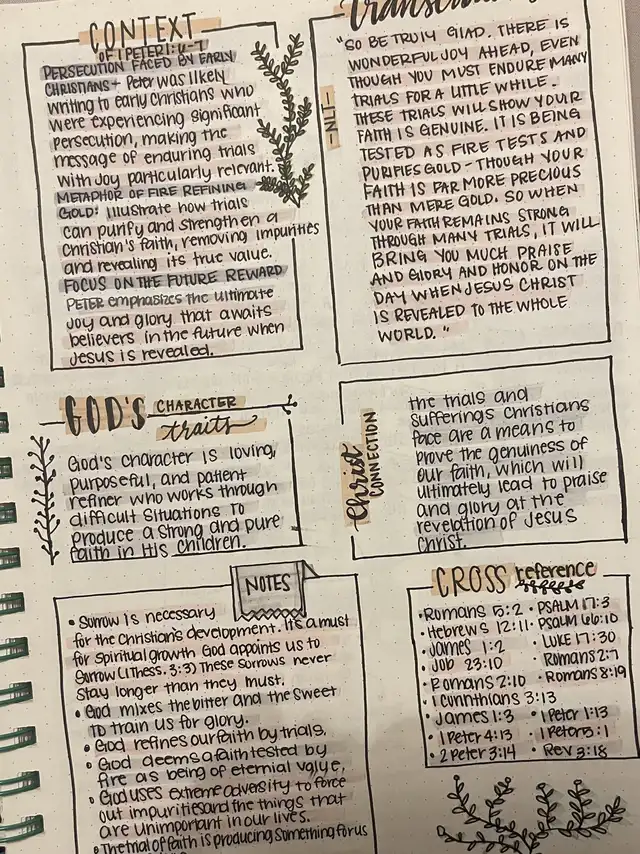 CONTEXT
OF 1 PETER 1:6-7
PERSECUTION FACED BY EARLY
CHRISTIANS- Peter was likely
writing to early Christians who
were experiencing significant
persecution, making the
message of enduring trials
with joy particularly relevant.
METAPHOR OF FIRE REFINING
GOLD: Illustrate how trials
can purify and strengthen a
Christian's faith, removing impurities
and revealing its true value.
FOCUS ON THE FUTURE REWARD
PETER emphasizes the ultimate
joy and glory that awaits
believers in the future when
Jesus is revealed.
-NLT-
"SO BE TRULY GLAD. THERE IS
WONDERFUL JOY AHEAD, EVEN
THOUGH YOU MUST ENDURE MANY
TRIALS FOR A LITTLE WHILE.
THESE TRIALS WILL SHOW YOUR
FAITH IS GENUINE. IT IS BEING
TESTED AS FIRE TESTS AND
PURIFIES GOLD - THOUGH YOUR
FAITH IS FAR MORE PRECIOUS
THAN MERE GOLD. SO WHEN
YOUR FAITH REMAINS STRONG
THROUGH MANY TRIALS, IT WILL
BRING YOU MUCH PRAISE
AND GLORY AND HONOR ON THE
DAY WHEN JESUS CHRIST
IS REVEALED TO THE WHOLE
WORLD."
GOD'S CHARACTER
traits
God's character is loving,
purposeful, and patient
refiner who works through
difficult situations to
produce a strong and pure
faith in His children.
Christ
CONNECTION
the trials and
sufferings Christians
face are a means to
prove the genuineness of
our faith, which will
ultimately lead to praise
and glory at the
revelation of Jesus
Christ.
NOTES
• Sorrow is necessary
for the Christian's development. It's a must
for spiritual growth God appoints us to
Sorrow (1 Thess. 3:3) These sorrows never
stay longer than they must.
• God mixes the bitter and the sweet
to train us for glory.
• God refines our faith by trials.
• God deems a faith tested by
fire as being of eternal value.
• God uses extreme adversity to force
out impurities and the things that
are unimportant in our lives.
• The trial of faith is producing something for us
CROSS reference
• Romans 5:2 • PSALM 17:3
• Hebrews 12:11 • PSALM 66:10
• James 1:2 • LUKE 17:30
• Job 23:10 • Romans 2:7
• Romans 2:10 • Romans 8:19
• 1 Corinthians 3:13
• James 1:3 • 1 Peter 1:13
• 1 Peter 4:13 • 1 Peter 5:1
• 2 Peter 3:14 • Rev 3:18